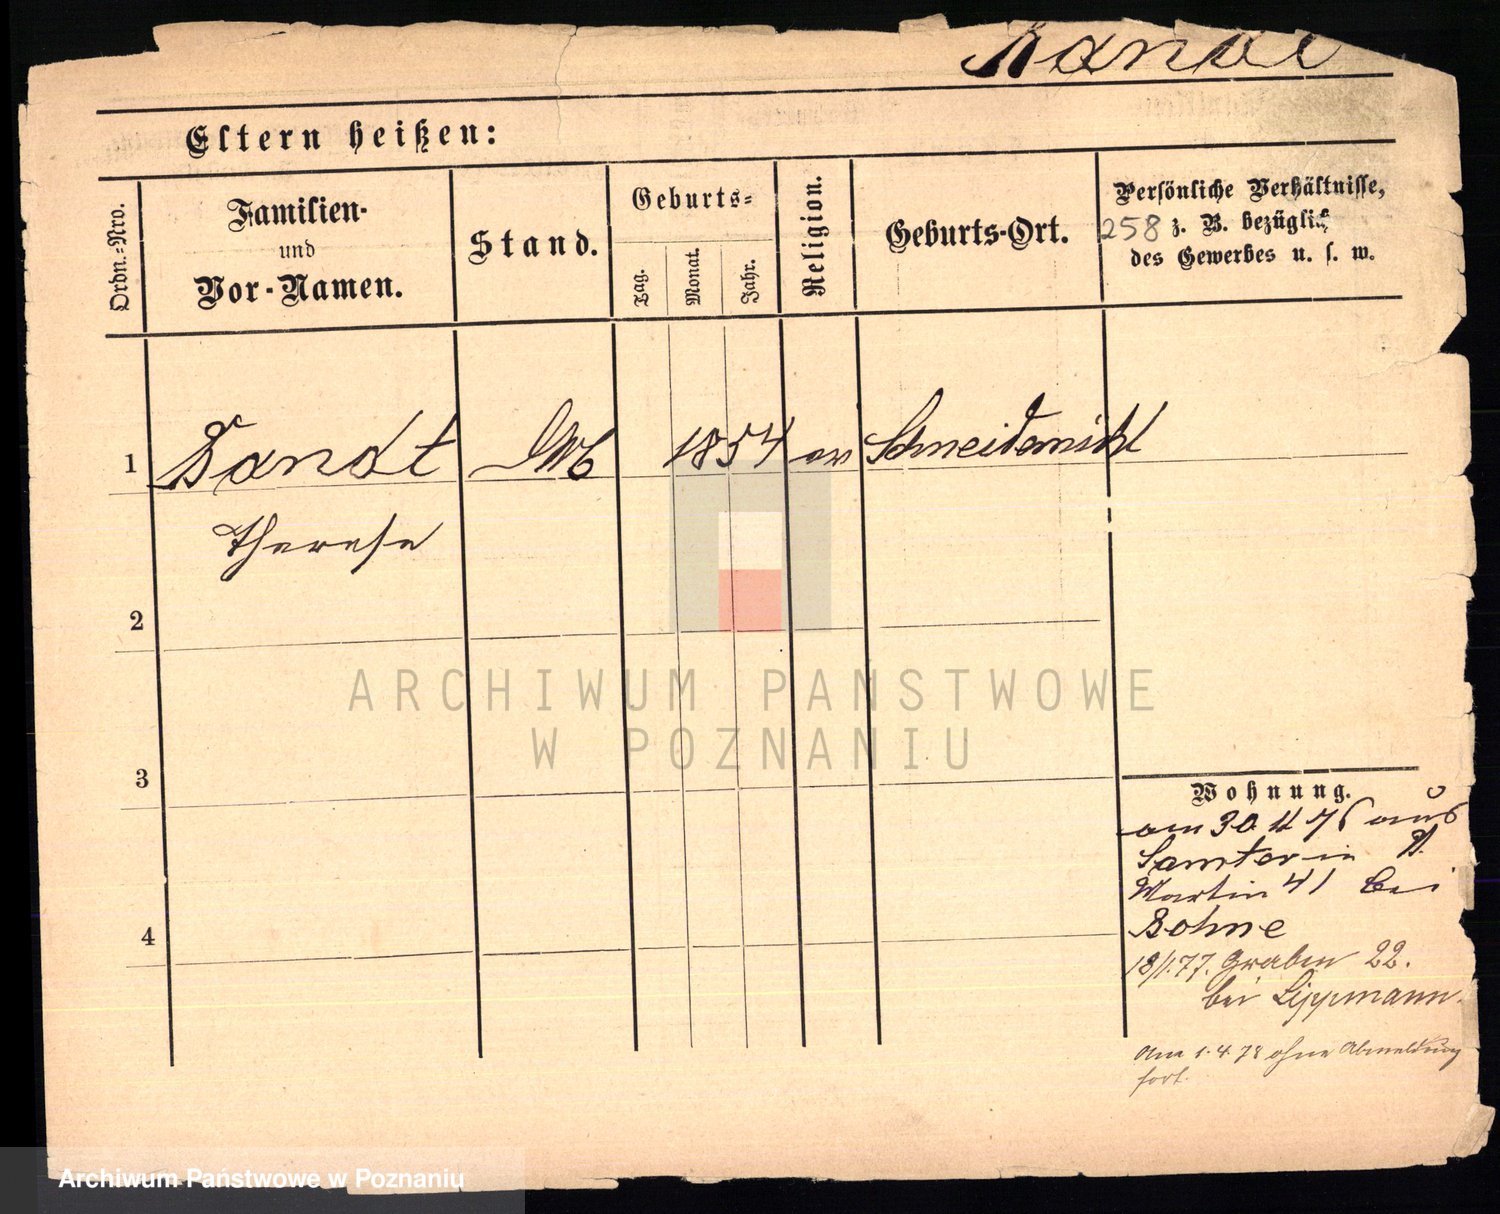 Bandt
Eltern heißen:
Ordn.-Nro.
Familien-
und
Vor-Namen.
Stand.
Geburts-
Tag.
Monat.
Jahr.
Religion.
Geburts-Ort.
Persönliche Verhältnisse,
258 z. B. bezüglich
des Gewerbes u. s. w.
1 Bandt 1854 ev Schneidemühl
Therese
2
3
4
Wohnung.
am 30 11 76 aus
Samter in St.
Martin 41 bei
Bohne
18/1.77. Graben 22.
bei Lippmann.
Am 1.4.78 ohne Abmeldung
fort.
ARCHIWUM PAŃSTWOWE
W POZNANIU
Archiwum Państwowe w Poznaniu